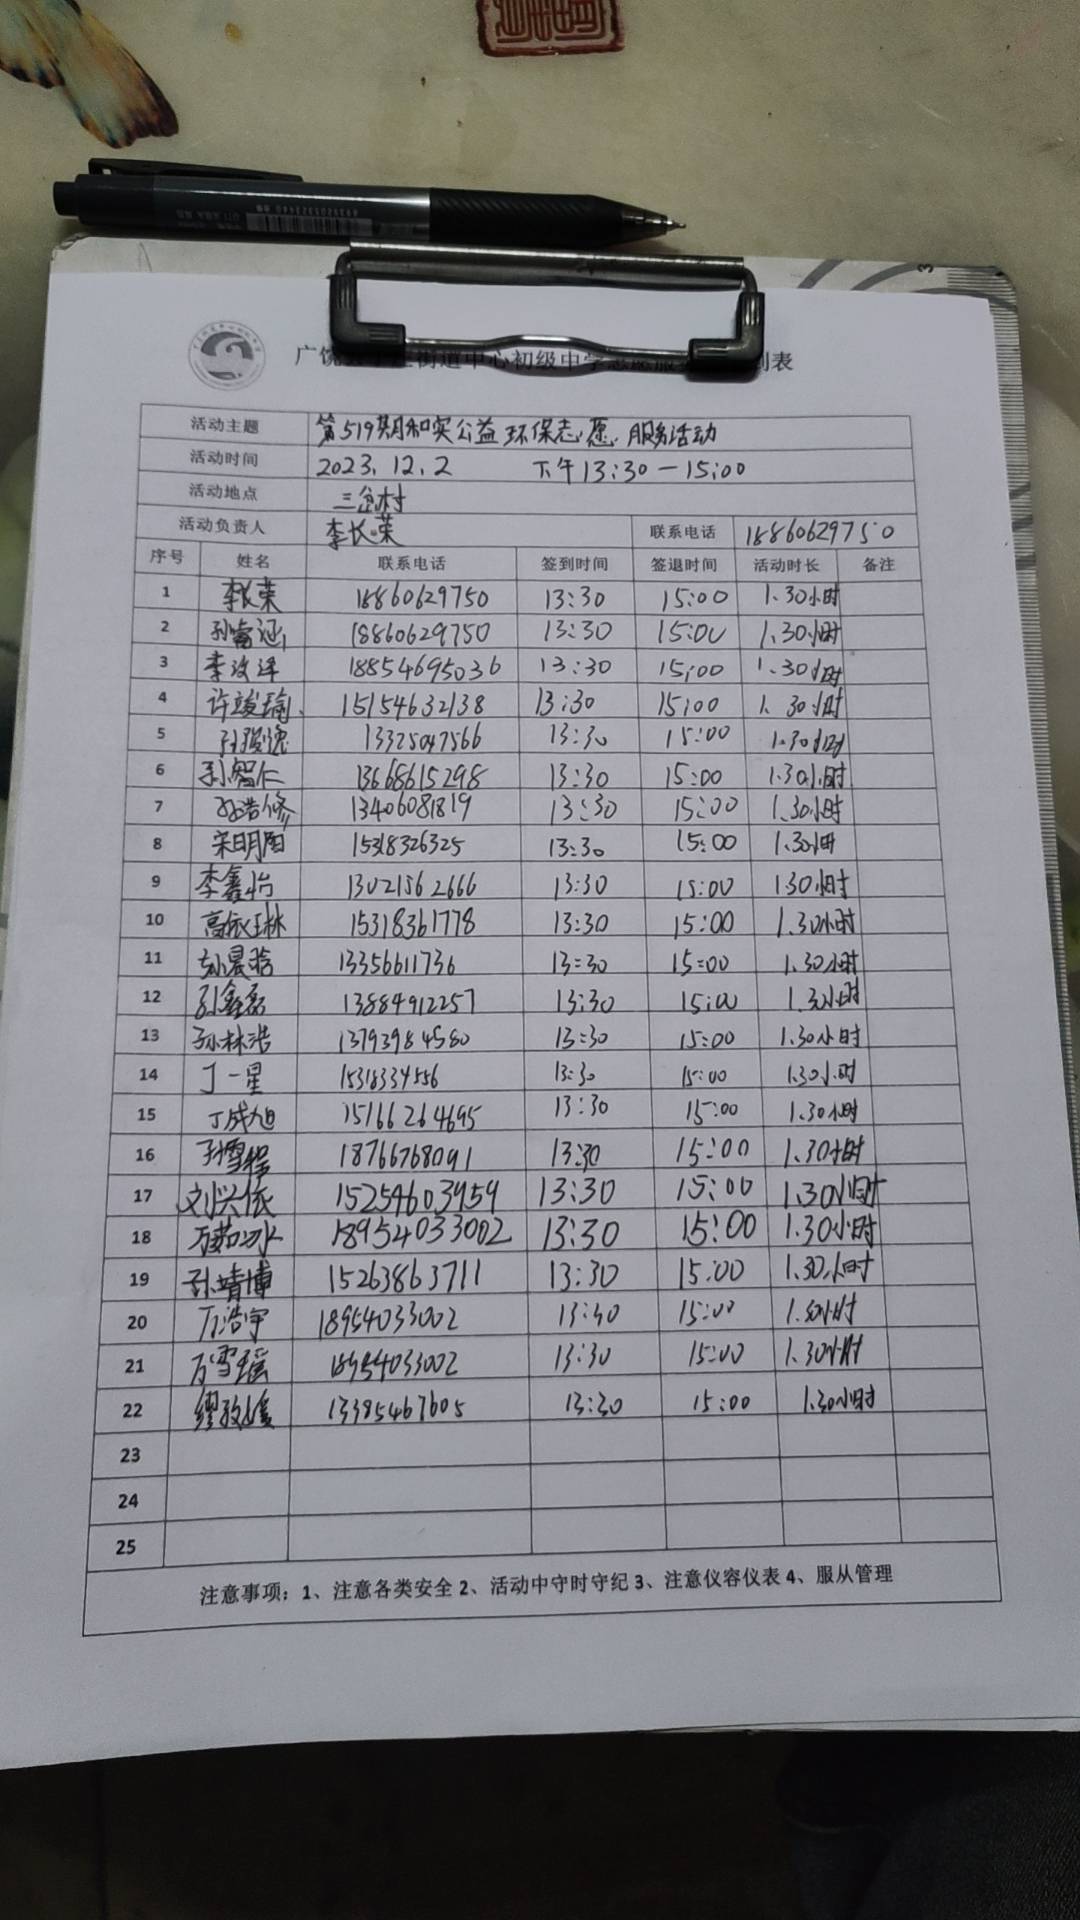 广饶
街道中心初级中学志愿服
到表
活动主题 第519期和实公益环保志愿服务活动
活动时间 2023.12.2 下午13:30—15:00
活动地点 三 村
活动负责人 李长荣 联系电话 18860629750
序号 姓名 联系电话 签到时间 签退时间 活动时长 备注
1 李长荣 18860629750 13:30 15:00 1.30小时
2 孙 涵 18860629750 13:30 15:00 1.30小时
3 李 泽 18854695036 13:30 15:00 1.30小时
4 许竣瑜 15154632138 13:30 15:00 1.30小时
5 孙骏逸 13325047566 13:30 15:00 1.30小时
6 孙智仁 13668615298 13:30 15:00 1.30小时
7 孙浩修 13406081819 13:30 15:00 1.30小时
8 宋明阳 15318326325 13:30 15:00 1.30小时
9 李鑫怡 13021562666 13:30 15:00 1.30小时
10 高依琳 15318361778 13:30 15:00 1.30小时
11 孙晨晗 13356611736 13:30 15:00 1.30小时
12 孙鑫磊 13884912257 13:30 15:00 1.30小时
13 孙林浩 13793984580 13:30 15:00 1.30小时
14 丁一星 15318334556 13:30 15:00 1.30小时
15 丁成旭 15166264695 13:30 15:00 1.30小时
16 孙雪程 18766768091 13:30 15:00 1.30小时
17 刘兴依 15254603959 13:30 15:00 1.30小时
18 万茹冰 18954033002 13:30 15:00 1.30小时
19 孙靖博 15263863711 13:30 15:00 1.30小时
20 万浩宇 18954033002 13:30 15:00 1.30小时
21 万雪瑶 18954033002 13:30 15:00 1.30小时
22 缪 媛 13385467605 13:30 15:00 1.30小时
23
24
25
注意事项：1、注意各类安全2、活动中守时守纪3、注意仪容仪表4、服从管理